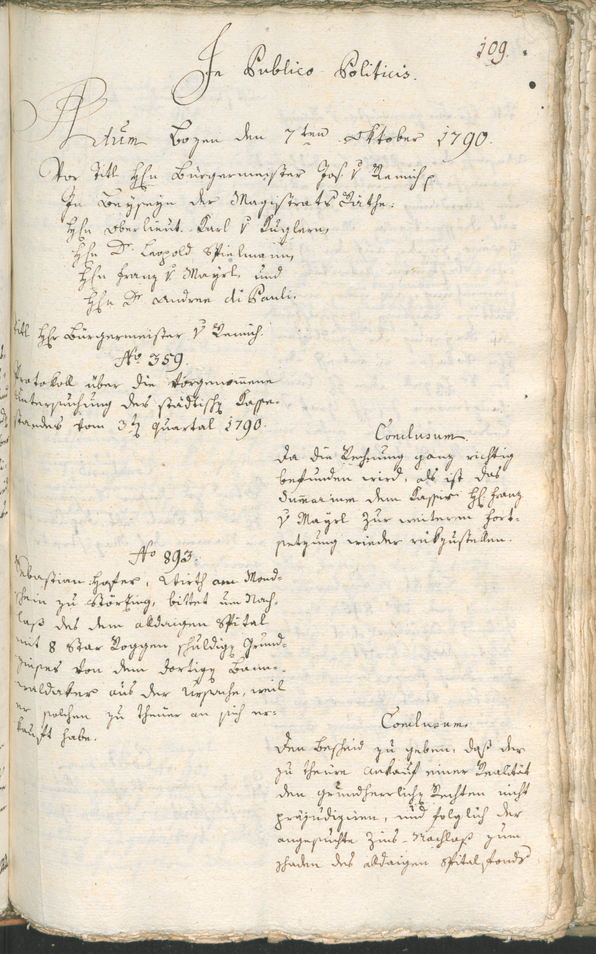 109.
In Publico Politicis.
Actum Bozen den 7ten Oktober 1790.
Vor Titl Hhn Bürgermeister Jos. v Remich
In Beyseyn der Magistrats Räthe:
Hhn Oberlieut. Karl v
Hhn Dr. Leopold Spielmann,
Hhn Franz v Mayrl, und
Hhn Dr. Andree di Pauli.
Titl Hhr Bürgermeister v Remich.
No 359.
Protokoll über die vorgenomene
Untersuchung des städtisch Kasse-
standes vom 3t Quartal 1790.
Conclusum
Da die Rechnung ganz richtig
befunden wird, als ist das
dem Kassier Hh Franz
v Mayrl zur weiterm Fort-
setzung wieder rükzustellen.
No 893.
Sebastian Hofer, Wirth am Mond-
schein zu bittet um Nach-
laß des dem alldaigen Spital
mit 8 Star Roggen schuldig Grund-
zinses von dem dortig
aus der Ursache, weil
er solchen zu theuer an sich er-
kauft habe.
Conclusum
Den Bescheid zu geben, daß der
zu theure Ankauf einer Realität
den grundherrlich Rechten nicht
präjudiziere, und folglich der
angesuchte Zins-Nachlaß zum
Schaden des alldaigen Spitalfonds